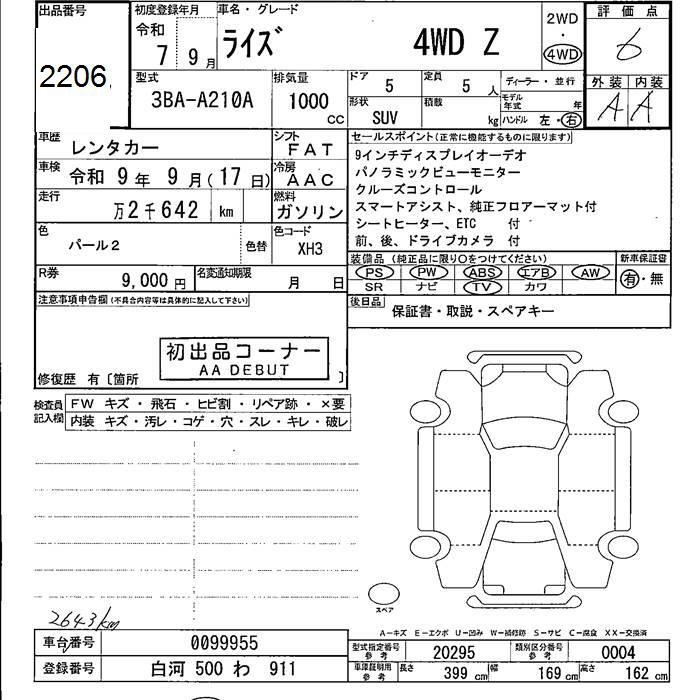 出品番号
2206
初度登録年月 車名・グレード
令和
7 9月 ライズ 4WD Z
2WD
・
4WD
評価点
6
外装 内装
A A
型式 排気量
3BA-A210A 1000 CC
ドア 5 定員 5 人 ディーラー・並行
形状 SUV 積載 kg モデル年式 年
ハンドル 左・右
車歴 レンタカー シフト FAT
車検 令和 9年 9月(17日) 冷房 AAC
走行 万2千642 km 燃料 ガソリン
色 パール2 色替 色コード XH3
R券 9,000円 名変通知期限 月 日
セールスポイント(正常に機能するものに限ります)
9インチディスプレイオーデオ
パノラミックビューモニター
クルーズコントロール
スマートアシスト、純正フロアーマット付
シートヒーター、ETC 付
前、後、ドライブカメラ 付
装備品(純正品に限り○をつけてください) 新車保証書
PS PW ABS エアB AW 有・無
SR ナビ TV カワ
後日品
保証書・取説・スペアキー
注意事項申告欄(不具合内容等は具体的に記入して下さい)
初出品コーナー
AA DEBUT
修復歴 有〔箇所 〕
検査員記入欄
FW キズ・飛石・ヒビ割・リペア跡・×要
内装 キズ・汚レ・コゲ・穴・スレ・キレ・破レ
スペア
2643km
A-キズ E-エクボ U-凹み W-補修跡 S-サビ C-腐食 XX-交換済
車台番号 0099955
登録番号 白河 500 わ 911
型式指定番号参考 20295 類別区分番号参考 0004
車庫証明用参考 長さ 399 cm 幅 169 cm 高さ 162 cm